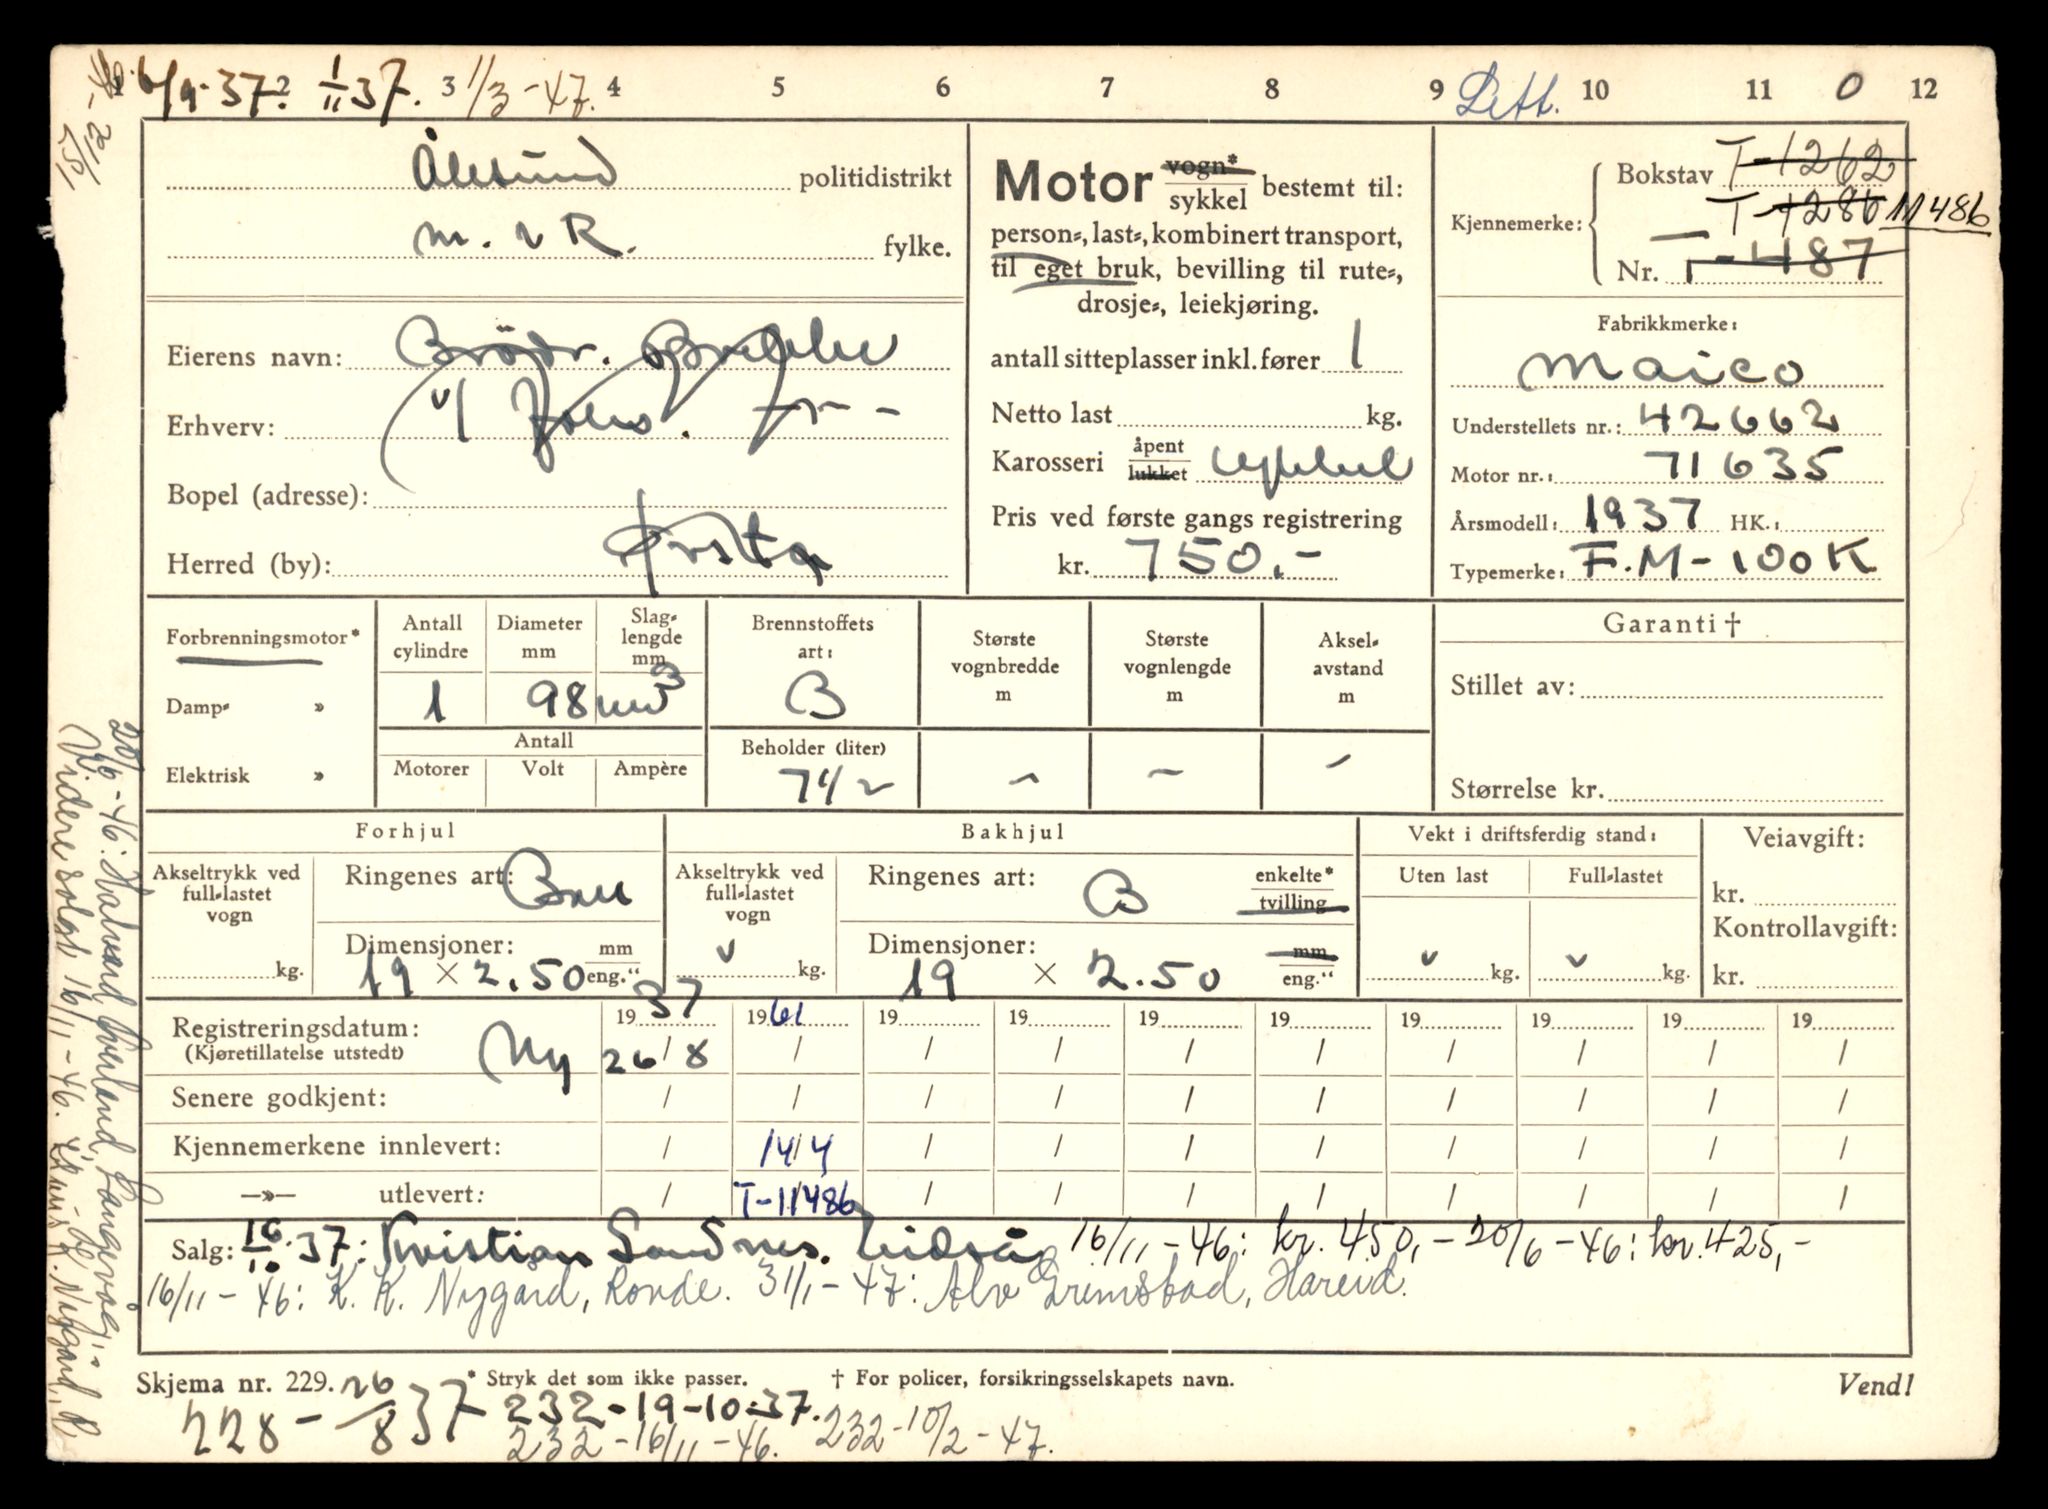 1 2 3 4 5 6 7 8 9 10 11 0 12
6/9-37. 1/11 37. 11/3-47. Lett.
Ålesund politidistrikt
M. & R. fylke.
Eierens navn: Brödr. Brekke
Erhverv: v/ Johs.
Bopel (adresse):
Herred (by): Ørsta
Motor vogn*/sykkel bestemt til:
person-, last-, kombinert transport,
til eget bruk, bevilling til rute-,
drosje-, leiekjøring.
antall sitteplasser inkl. fører 1
Netto last kg.
Karosseri åpent/lukket sykkel
Pris ved første gangs registrering
kr. 750.-
Kjennemerke:
Bokstav T-1262
T-1286 11486
Nr. T-487
Fabrikkmerke:
Maico
Understellets nr.: 42662
Motor nr.: 71635
Årsmodell: 1937 HK.:
Typemerke: F.M-100K
Forbrenningsmotor*
Damp- »
Elektrisk »
Antall cylindre 1
Diameter mm 98
Slaglengde mm
Antall
Motorer Volt Ampère
Brennstoffets art: B
Beholder (liter)
7 1/2
Største vognbredde m -
Største vognlengde m -
Akselavstand m -
Garanti †
Stillet av:
Størrelse kr.
Forhjul
Akseltrykk ved full-lastet vogn kg.
Ringenes art: Ball
Dimensjoner: mm/eng."
19 × 2.50
Bakhjul
Akseltrykk ved full-lastet vogn v kg.
Ringenes art: B enkelte*/tvilling
Dimensjoner: mm/eng."
19 × 2.50
Vekt i driftsferdig stand:
Uten last Full-lastet
v kg. v kg.
Veiavgift:
kr.
Kontrollavgift:
kr.
Registreringsdatum: 1937 1961 19 19 19 19 19 19 19 19
(Kjøretillatelse utstedt) Ny 26/8 / / / / / / / / /
Senere godkjent: / / / / / / / / / /
Kjennemerkene innlevert: / 14/4 / / / / / / / /
—»— utlevert: / T-11486 / / / / / / / /
Salg: 16/10.37: Kristian Sandnes. Eidså 16/11-46: kr. 450,- 20/6-46: kr. 425,-
16/11-46: K. K. Nygård, Rovde. 31/1-47: Alv Grimstad, Hareid.
Skjema nr. 229. * Stryk det som ikke passer. † For policer, forsikringsselskapets navn. Vend!
228-26/8 37 232-19-10-37.
232-16/11-46. 232-10/2-47.
20/6-46: Halvard Overland, Langevåg.
Videresolgt 16/11-46. K. Nygård, R.